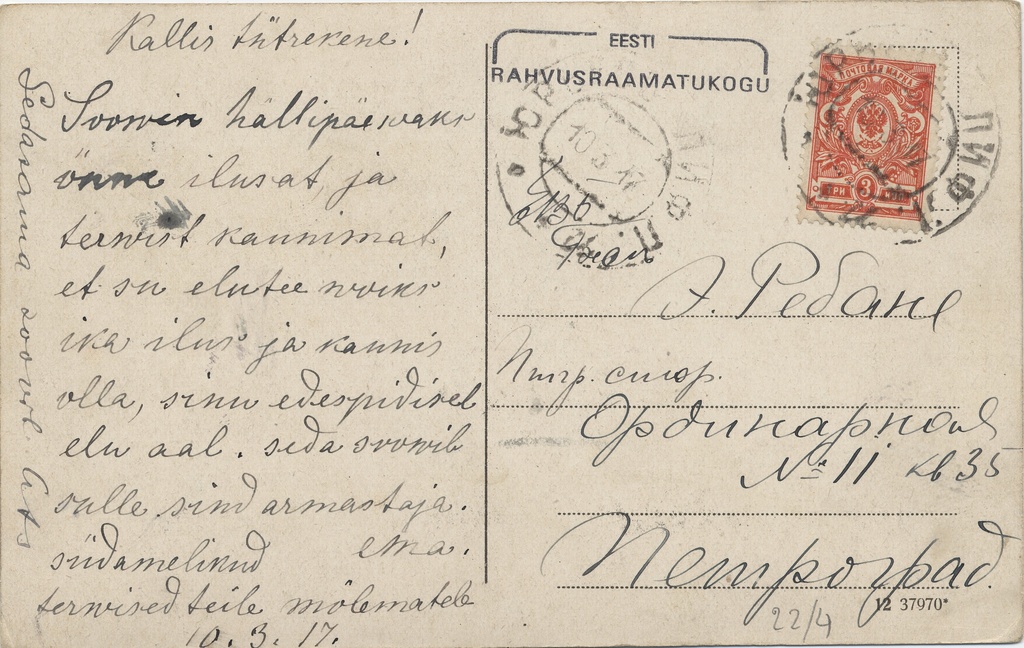 Kallis tütrekene!
Soowin hällipäewaks
õnne ilusat, ja
terwist kaunimat,
et su elutee woiks
ika ilus ja kaunis
olla, sinu edespidisel
elu aal. seda soowib
sulle sind armastaja.
ema.
südamelikud
terwised teile mõlematele
10.3.17.
Sedasama soovib Ats
EESTI
RAHVUSRAAMATUKOGU
10.3.17
ПОЧТОВАЯ МАРКА
ТРИ 3 КОП
Э. Ребане
Птгр. стор.
Ординарная
№ 11 кв 35
Петроград
12 37970*
22/4